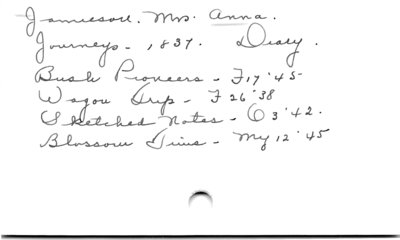 Jamieson. Mrs. Anna.
Journeys - 1837. Diary.
Bush Pioneers - F 17 '45
Wagon Trip - F 26 '38
Sketched Notes - O 3 '42.
Blossom Time - My 12 '45